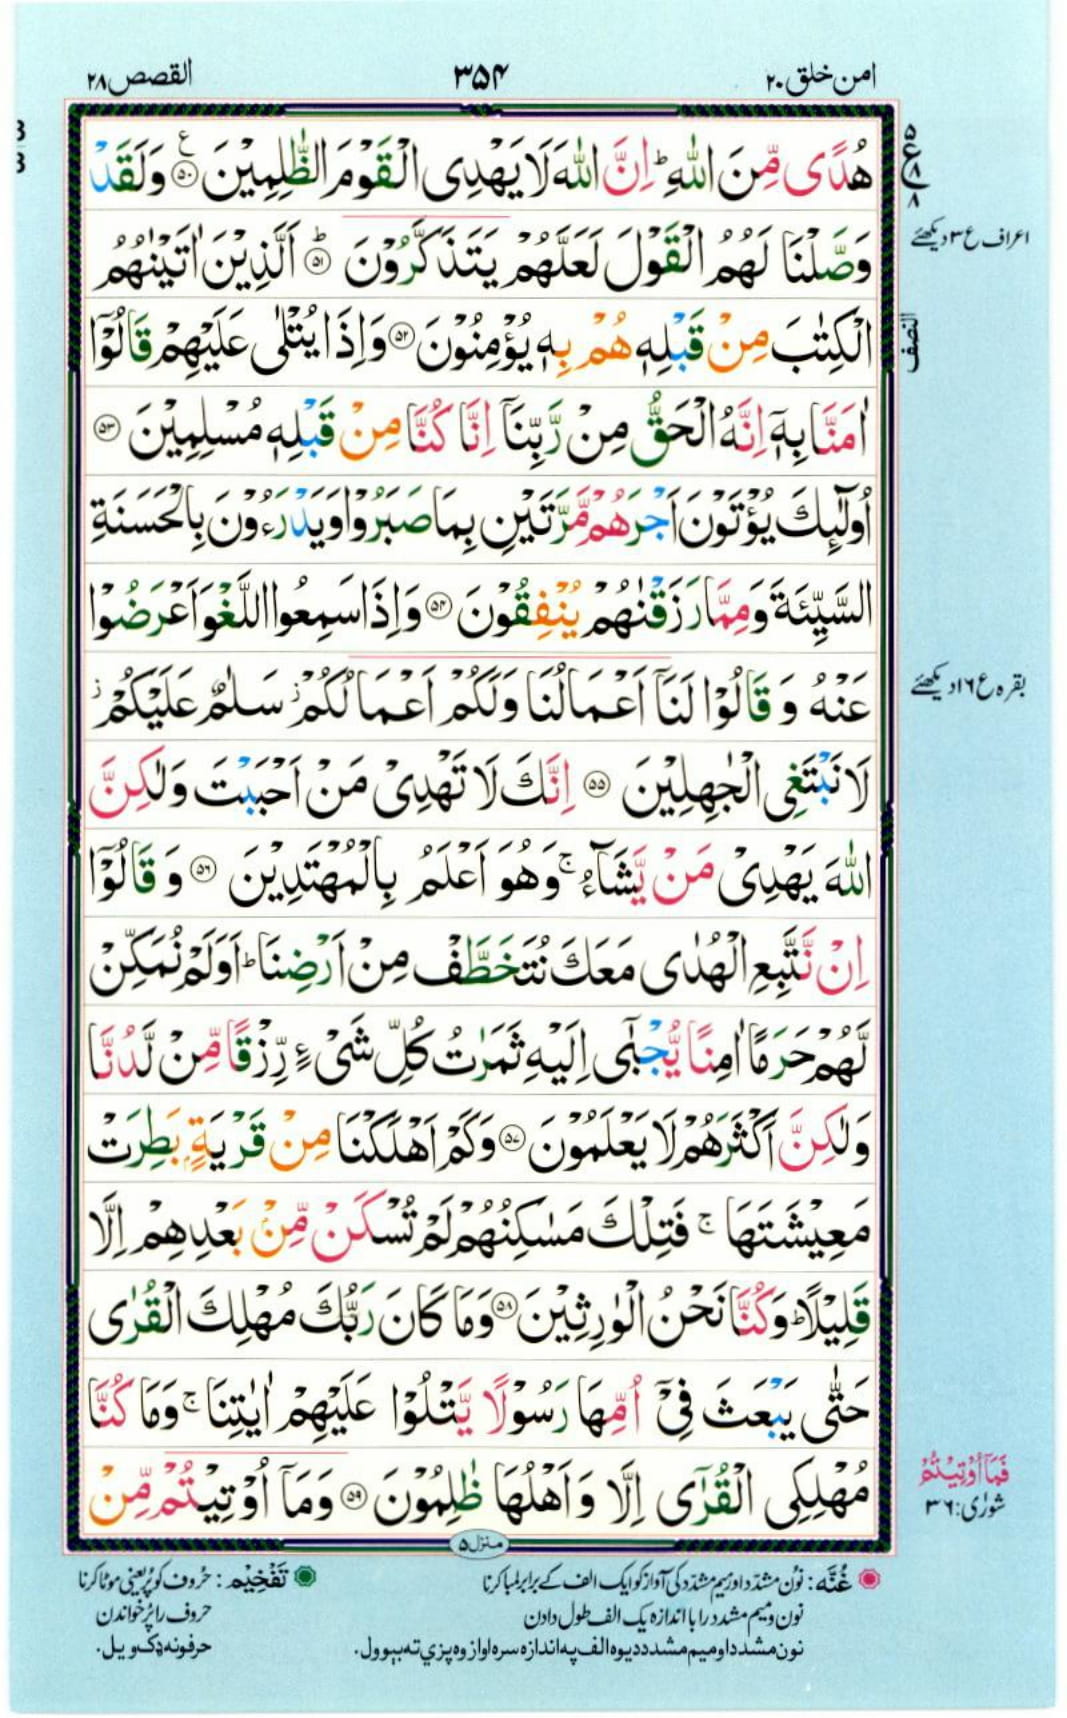 القصص ۲۸
۳۵۴
امن خلق ۲۰
هُدًى مِّنَ اللّٰهِ ؕ اِنَّ اللّٰهَ لَا يَهْدِى الْقَوْمَ الظّٰلِمِيْنَ ۵۰ ع وَلَقَدْ
وَصَّلْنَا لَهُمُ الْقَوْلَ لَعَلَّهُمْ يَتَذَكَّرُوْنَ ؕ ۵۱ اَلَّذِيْنَ اٰتَيْنٰهُمُ
الْكِتٰبَ مِنْ قَبْلِهٖ هُمْ بِهٖ يُؤْمِنُوْنَ ۵۲ وَاِذَا يُتْلٰى عَلَيْهِمْ قَالُوْٓا
اٰمَنَّا بِهٖٓ اِنَّهُ الْحَقُّ مِنْ رَّبِّنَآ اِنَّا كُنَّا مِنْ قَبْلِهٖ مُسْلِمِيْنَ ۵۳
اُولٰٓئِكَ يُؤْتَوْنَ اَجْرَهُمْ مَّرَّتَيْنِ بِمَا صَبَرُوْا وَيَدْرَءُوْنَ بِالْحَسَنَةِ
السَّيِّئَةَ وَمِمَّا رَزَقْنٰهُمْ يُنْفِقُوْنَ ۵۴ وَاِذَا سَمِعُوا اللَّغْوَ اَعْرَضُوْا
عَنْهُ وَ قَالُوْا لَنَآ اَعْمَالُنَا وَلَكُمْ اَعْمَالُكُمْ ز سَلٰمٌ عَلَيْكُمْ ز
لَا نَبْتَغِى الْجٰهِلِيْنَ ۵۵ اِنَّكَ لَا تَهْدِىْ مَنْ اَحْبَبْتَ وَلٰكِنَّ
اللّٰهَ يَهْدِىْ مَنْ يَّشَآءُ ۚ وَهُوَ اَعْلَمُ بِالْمُهْتَدِيْنَ ۵۶ وَ قَالُوْٓا
اِنْ نَّتَّبِعِ الْهُدٰى مَعَكَ نُتَخَطَّفْ مِنْ اَرْضِنَا ؕ اَوَلَمْ نُمَكِّنْ
لَّهُمْ حَرَمًا اٰمِنًا يُّجْبٰٓى اِلَيْهِ ثَمَرٰتُ كُلِّ شَىْءٍ رِّزْقًا مِّنْ لَّدُنَّا
وَلٰكِنَّ اَكْثَرَهُمْ لَا يَعْلَمُوْنَ ۵۷ وَكَمْ اَهْلَكْنَا مِنْ قَرْيَةٍۭ بَطِرَتْ
مَعِيْشَتَهَا ۚ فَتِلْكَ مَسٰكِنُهُمْ لَمْ تُسْكَنْ مِّنْۢ بَعْدِهِمْ اِلَّا
قَلِيْلًا ؕ وَكُنَّا نَحْنُ الْوٰرِثِيْنَ ۵۸ وَمَا كَانَ رَبُّكَ مُهْلِكَ الْقُرٰى
حَتّٰى يَبْعَثَ فِىْٓ اُمِّهَا رَسُوْلًا يَّتْلُوْا عَلَيْهِمْ اٰيٰتِنَا ۚ وَمَا كُنَّا
مُهْلِكِى الْقُرٰٓى اِلَّا وَاَهْلُهَا ظٰلِمُوْنَ ۵۹ وَمَآ اُوْتِيْتُمْ مِّنْ
منزل ۵
اعراف ع ۳ دیکھئے
النصف
بقرہ ع ۱۶ دیکھئے
فَمَآ اُوْتِيْتُمْ
شورٰی: ۳۶
غُنَّه: نون مشدد اور میم مشدد کی آواز کو ایک الف کے برابر لمبا کرنا
نون و میم مشدد را با اندازه یک الف طول دادن
نون مشدد او میم مشدد دیوه الف په اندازه سره اواز وه پزي ته بېوول.
تَفْخِيْم: حروف کو پُر یعنی موٹا کرنا
حروف را پُر خواندن
حرفونه ډک ویل.